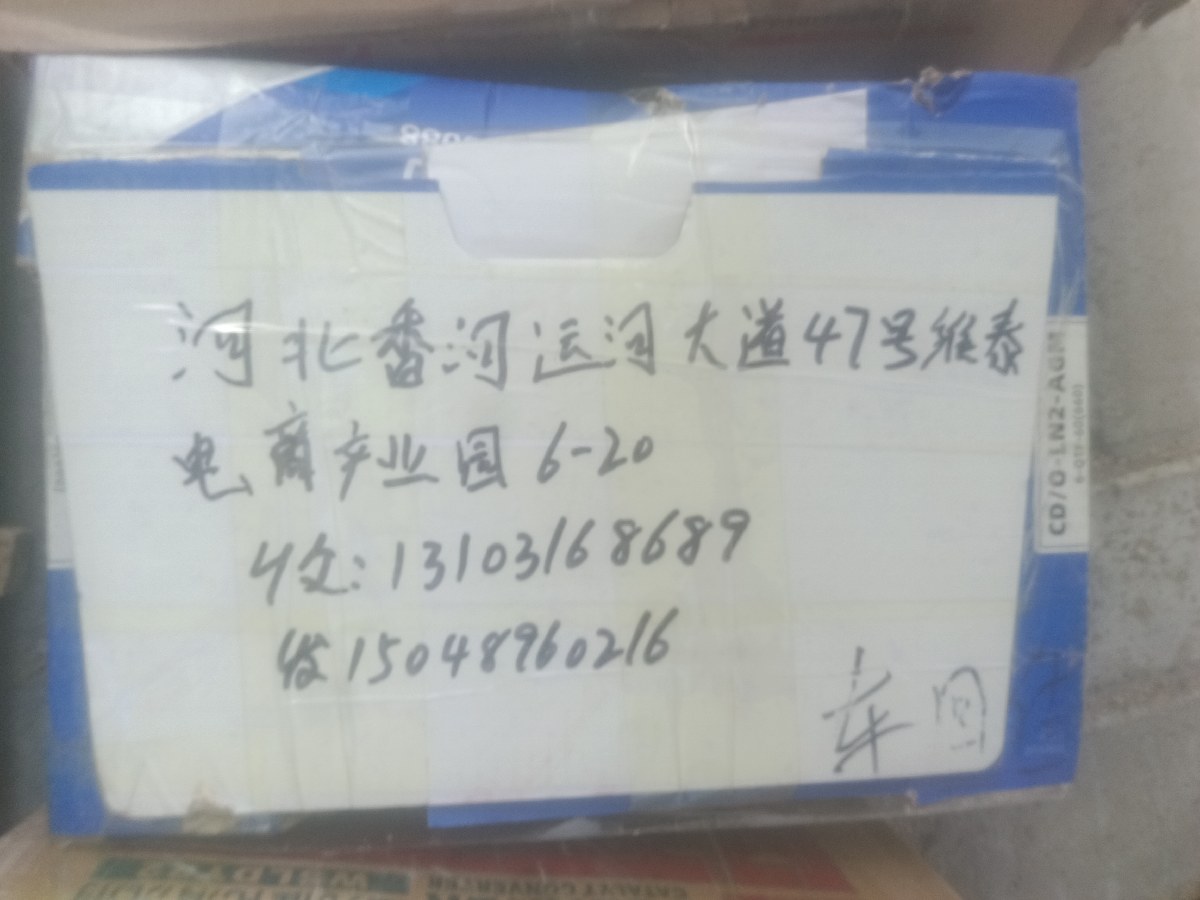 河北香河运河大道47号维泰
电商产业园6-20
收:13103168689
发15048960216
车间
CD/Q-LN2-AGM
CATALYT CONVERTER